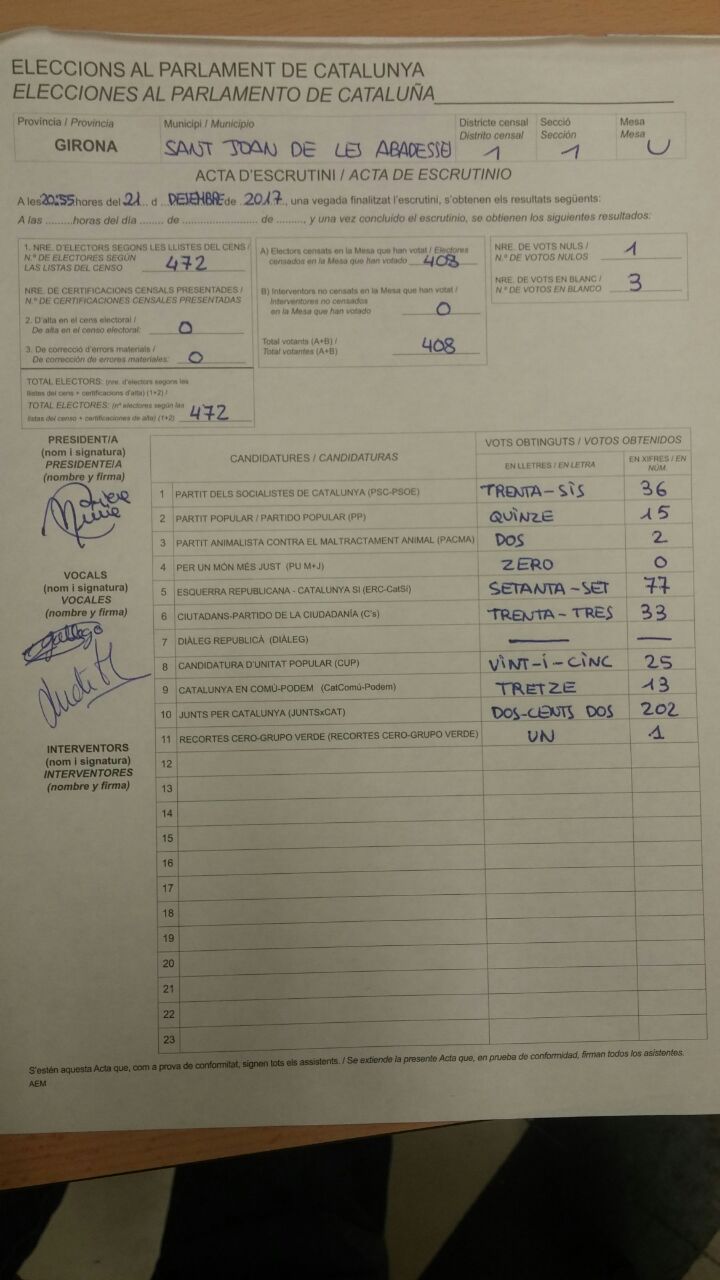 ELECCIONS AL PARLAMENT DE CATALUNYA
ELECCIONES AL PARLAMENTO DE CATALUÑA
Província / Provincia
GIRONA
Municipi / Municipio
SANT JOAN DE LES ABADESSES
Districte censal
Distrito censal
1
Secció
Sección
1
Mesa
Mesa
U
ACTA D'ESCRUTINI / ACTA DE ESCRUTINIO
A les 20:55 hores del 21 d DESEMBRE de 2017, una vegada finalitzat l'escrutini, s'obtenen els resultats següents:
A las .........horas del día ....... de ......................... de ........., y una vez concluido el escrutinio, se obtienen los siguientes resultados:
1. NRE. D'ELECTORS SEGONS LES LLISTES DEL CENS /
N.º DE ELECTORES SEGÚN
LAS LISTAS DEL CENSO 472
NRE. DE CERTIFICACIONS CENSALS PRESENTADES /
N.º DE CERTIFICACIONES CENSALES PRESENTADAS
2. D'alta en el cens electoral /
De alta en el censo electoral: 0
3. De correcció d'errors materials /
De corrección de errores materiales: 0
TOTAL ELECTORS: (nre. d'electors segons les
llistes del cens + certificacions d'alta) (1+2) /
TOTAL ELECTORES: (nº electores según las
listas del censo + certificaciones de alta) (1+2) 472
A) Electors censats en la Mesa que han votat / Electores
censados en la Mesa que han votado 408
B) Interventors no censats en la Mesa que han votat /
Interventores no censados
en la Mesa que han votado 0
Total votants (A+B) /
Total votantes (A+B) 408
NRE. DE VOTS NULS /
N.º DE VOTOS NULOS 1
NRE. DE VOTS EN BLANC /
N.º DE VOTOS EN BLANCO 3
PRESIDENT/A
(nom i signatura)
PRESIDENTE/A
(nombre y firma)
VOCALS
(nom i signatura)
VOCALES
(nombre y firma)
INTERVENTORS
(nom i signatura)
INTERVENTORES
(nombre y firma)
CANDIDATURES / CANDIDATURAS
VOTS OBTINGUTS / VOTOS OBTENIDOS
EN LLETRES / EN LETRA
EN XIFRES / EN NÚM.
1 PARTIT DELS SOCIALISTES DE CATALUNYA (PSC-PSOE) TRENTA-SIS 36
2 PARTIT POPULAR / PARTIDO POPULAR (PP) QUINZE 15
3 PARTIT ANIMALISTA CONTRA EL MALTRACTAMENT ANIMAL (PACMA) DOS 2
4 PER UN MÓN MÉS JUST (PU M+J) ZERO 0
5 ESQUERRA REPUBLICANA - CATALUNYA SI (ERC-CatSí) SETANTA-SET 77
6 CIUTADANS-PARTIDO DE LA CIUDADANÍA (C's) TRENTA-TRES 33
7 DIÀLEG REPUBLICÀ (DIÀLEG) — —
8 CANDIDATURA D'UNITAT POPULAR (CUP) VINT-I-CINC 25
9 CATALUNYA EN COMÚ-PODEM (CatComú-Podem) TRETZE 13
10 JUNTS PER CATALUNYA (JUNTSxCAT) DOS-CENTS DOS 202
11 RECORTES CERO-GRUPO VERDE (RECORTES CERO-GRUPO VERDE) UN 1
12
13
14
15
16
17
18
19
20
21
22
23
S'estén aquesta Acta que, com a prova de conformitat, signen tots els assistents. / Se extiende la presente Acta que, en prueba de conformidad, firman todos los asistentes.
AEM